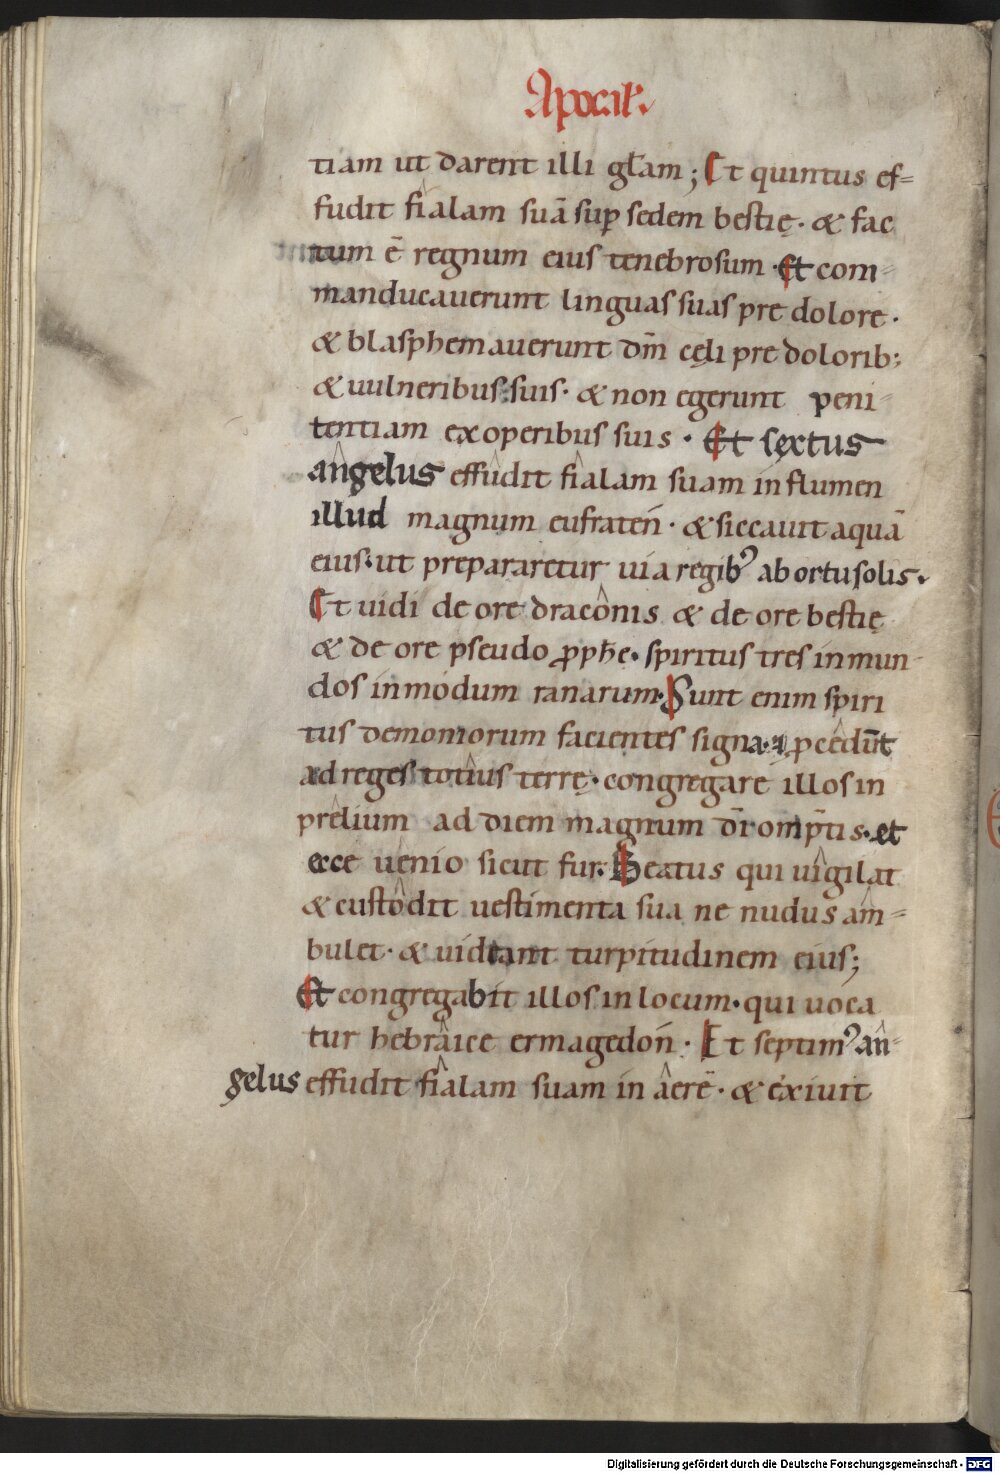 Apocal̄.
tiam ut darent illi gl̄am; Et quintus ef=
fudit fialam suā sup̱ sedem bestię. & fac
tum ē regnum eius tenebrosum. Et com=
manducauerunt linguas suas pre dolore.
& blasphemauerunt dm̄ cęli pre dolorib;
& uulneribus suis. & non egerunt peni-
tentiam ex operibus suis. Et sextus
angelus effudit fialam suam in flumen
illud magnum eufraten̄. & siccauit aquā
eius. ut prepararetur uia regib᾿ ab ortu solis.
Et uidi de ore draconis & de ore bestię
& de ore pseudo ꝓph̄e. spiritus tres inmun-
dos in modum ranarum. Sunt enim spiri
tus demoniorum facientes signa. ⁊ ꝓcedūt
ad reges totius terrę. congregare illos in
prelium ad diem magnum dī omp̄tis. et
ecce uenio sicut fur. Beatus qui uigilat
& custodit uestimenta sua ne nudus am=
bulet. & uideant turpitudinem eius;
Et congregabit illos in locum. qui uoca
tur hebraice ermagedon̄. Et septim᾿ an-
gelus effudit fialam suam in aerē. & exiuit
Digitalisierung gefördert durch die Deutsche Forschungsgemeinschaft - DFG